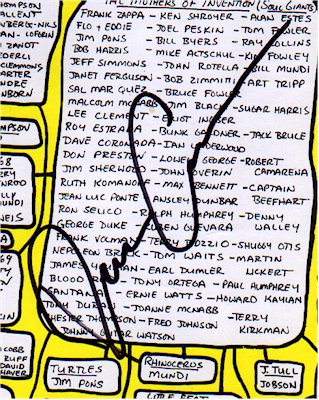 THE MOTHERS OF INVENTION (SOUL GIANTS)
FRANK ZAPPA - KEN SHROYER - ALAN ESTES
FLO + EDDIE - JOEL PESKIN - TOM FOWLER
JIM PONS - BILL BYERS - RAY COLLINS
BOB HARRIS - MIKE ALTSCHUL - KIM FOWLEY
JEFF SIMMONS - JOHN ROTELLA - BILL MUNDI
JANET FERGUSON - BOB ZIMMITTI - ART TRIPP
SAL MARQUEZ - BRUCE FOWLER
MALCOLM MCNABB - JIM BLACK - SUGAR HARRIS
LEE CLEMENT - ELIOT INGBER
ROY ESTRADA - BUNK GARDNER - JACK BRUCE
DAVE CORONADA - IAN UNDERWOOD
DON PRESTON - LOWELL GEORGE - ROBERT
JIM SHERWOOD - JOHN GUERIN CAMARENA
RUTH KOMANOFF - MAX BENNETT - CAPTAIN
JEAN LUC PONTE - AYNSLEY DUNBAR BEEFHART
RON SELICO - RALPH HUMPHREY - DENNY
GEORGE DUKE - BEN GUEVARA WALLEY
FRANK VOLMAN - TERRY BOZZIO - SHUGGY OTIS
NAPOLEON BROCK - TOM WAITS - MARTIN
JAMES - EARL DUMLER LICKERT
BLOOD - TONY ORTEGA - PAUL HUMPHREY
SANTANA - ERNIE WATTS - HOWARD KAYLAN
TONY DURAN - JOANNE MCNABB - TERRY
CHESTER THOMPSON - FRED JOHNSON KIRKMAN
JOHNNY GUITAR WATSON
TURTLES
JIM PONS
RHINOCERUS
MUNDI
J. TULL
JOBSON
LITTLE FEAT
MPSON
ALLEN
ZANOT
EDERLI
CLEMMONS
ARTER
ANDRE
NBORN
RUFF
DAVID